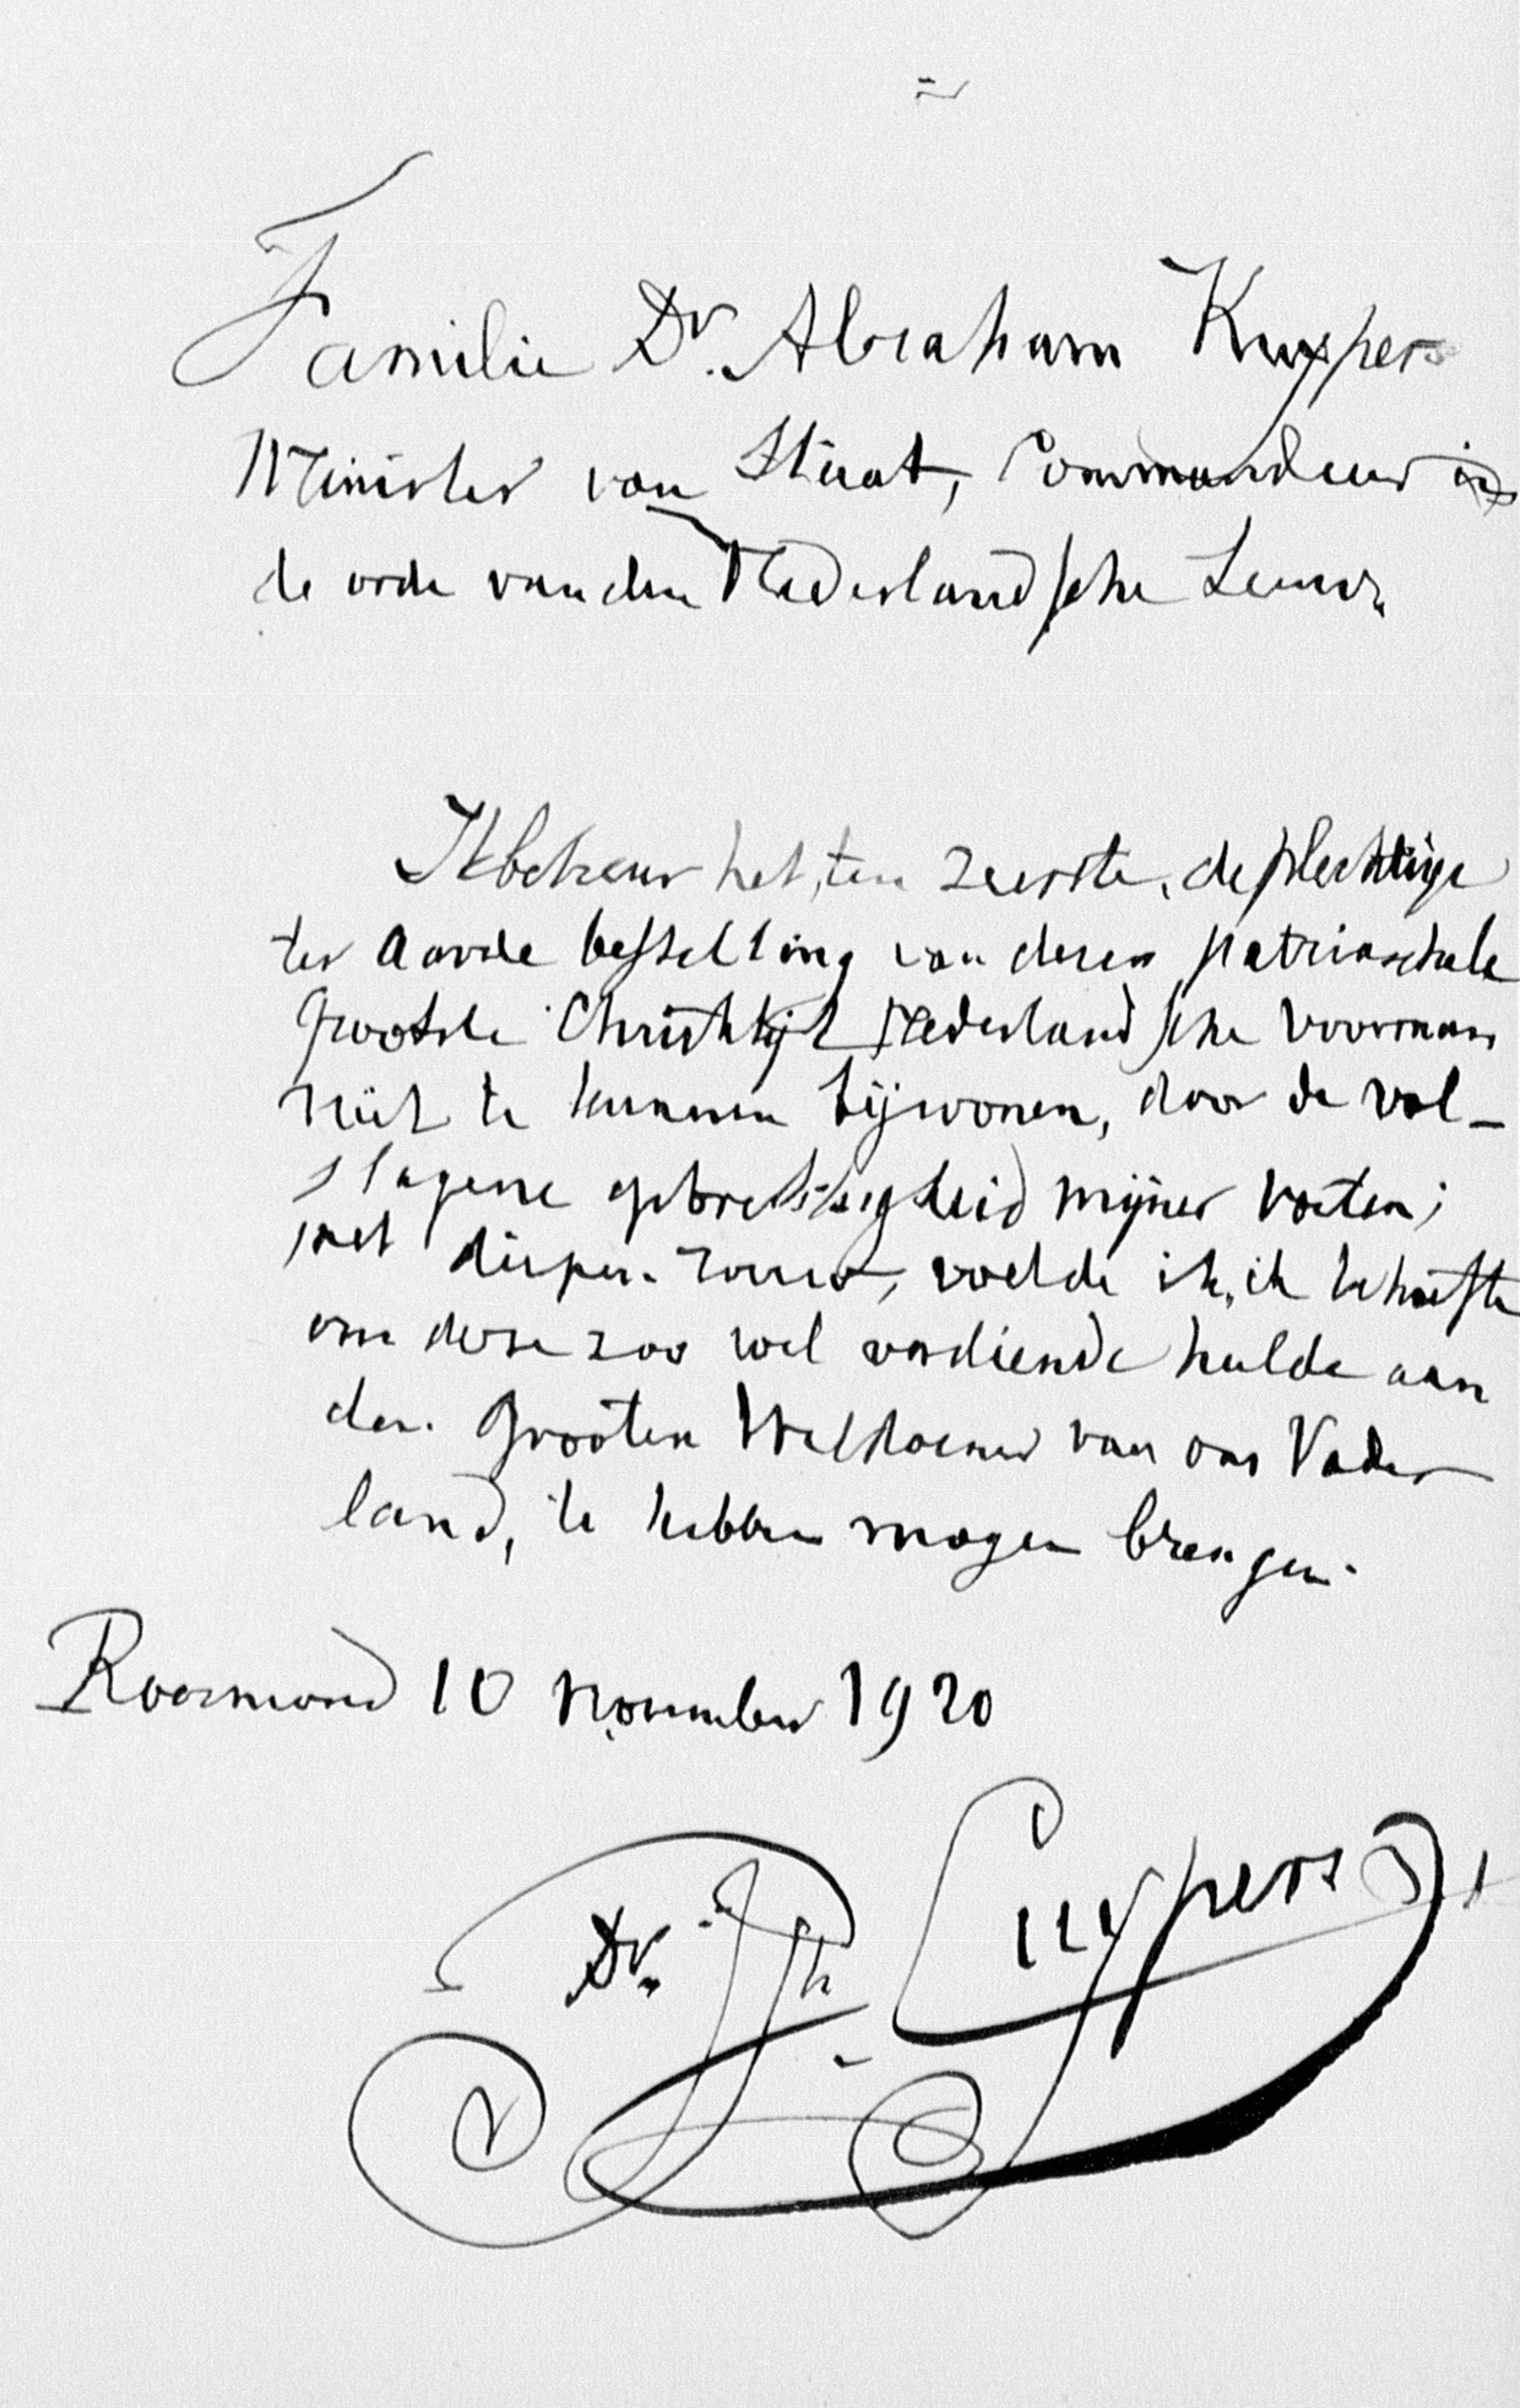 Familie Dr. Abraham Kuypers
Minister van Staat, Commandeur in
de orde van den Nederlandsche Leeuw.
Ik betreur het, ten zeerste, de plechtige
ter aarde bestelling van dezen patriarchale
grootste Christelijk Nederlandsche voorman
niet te kunnen bijwonen, door de vol-
slagene gebrekkigheid mijner voeten;
met diepen rouw, voelde ik, ik behoefte
om deze zoo wel verdiende hulde aan
den grooten Weldoener van ons Vader
land, te hebben mogen brengen.
Roermond 10 November 1920
Dr. P.J.H. Cuypers